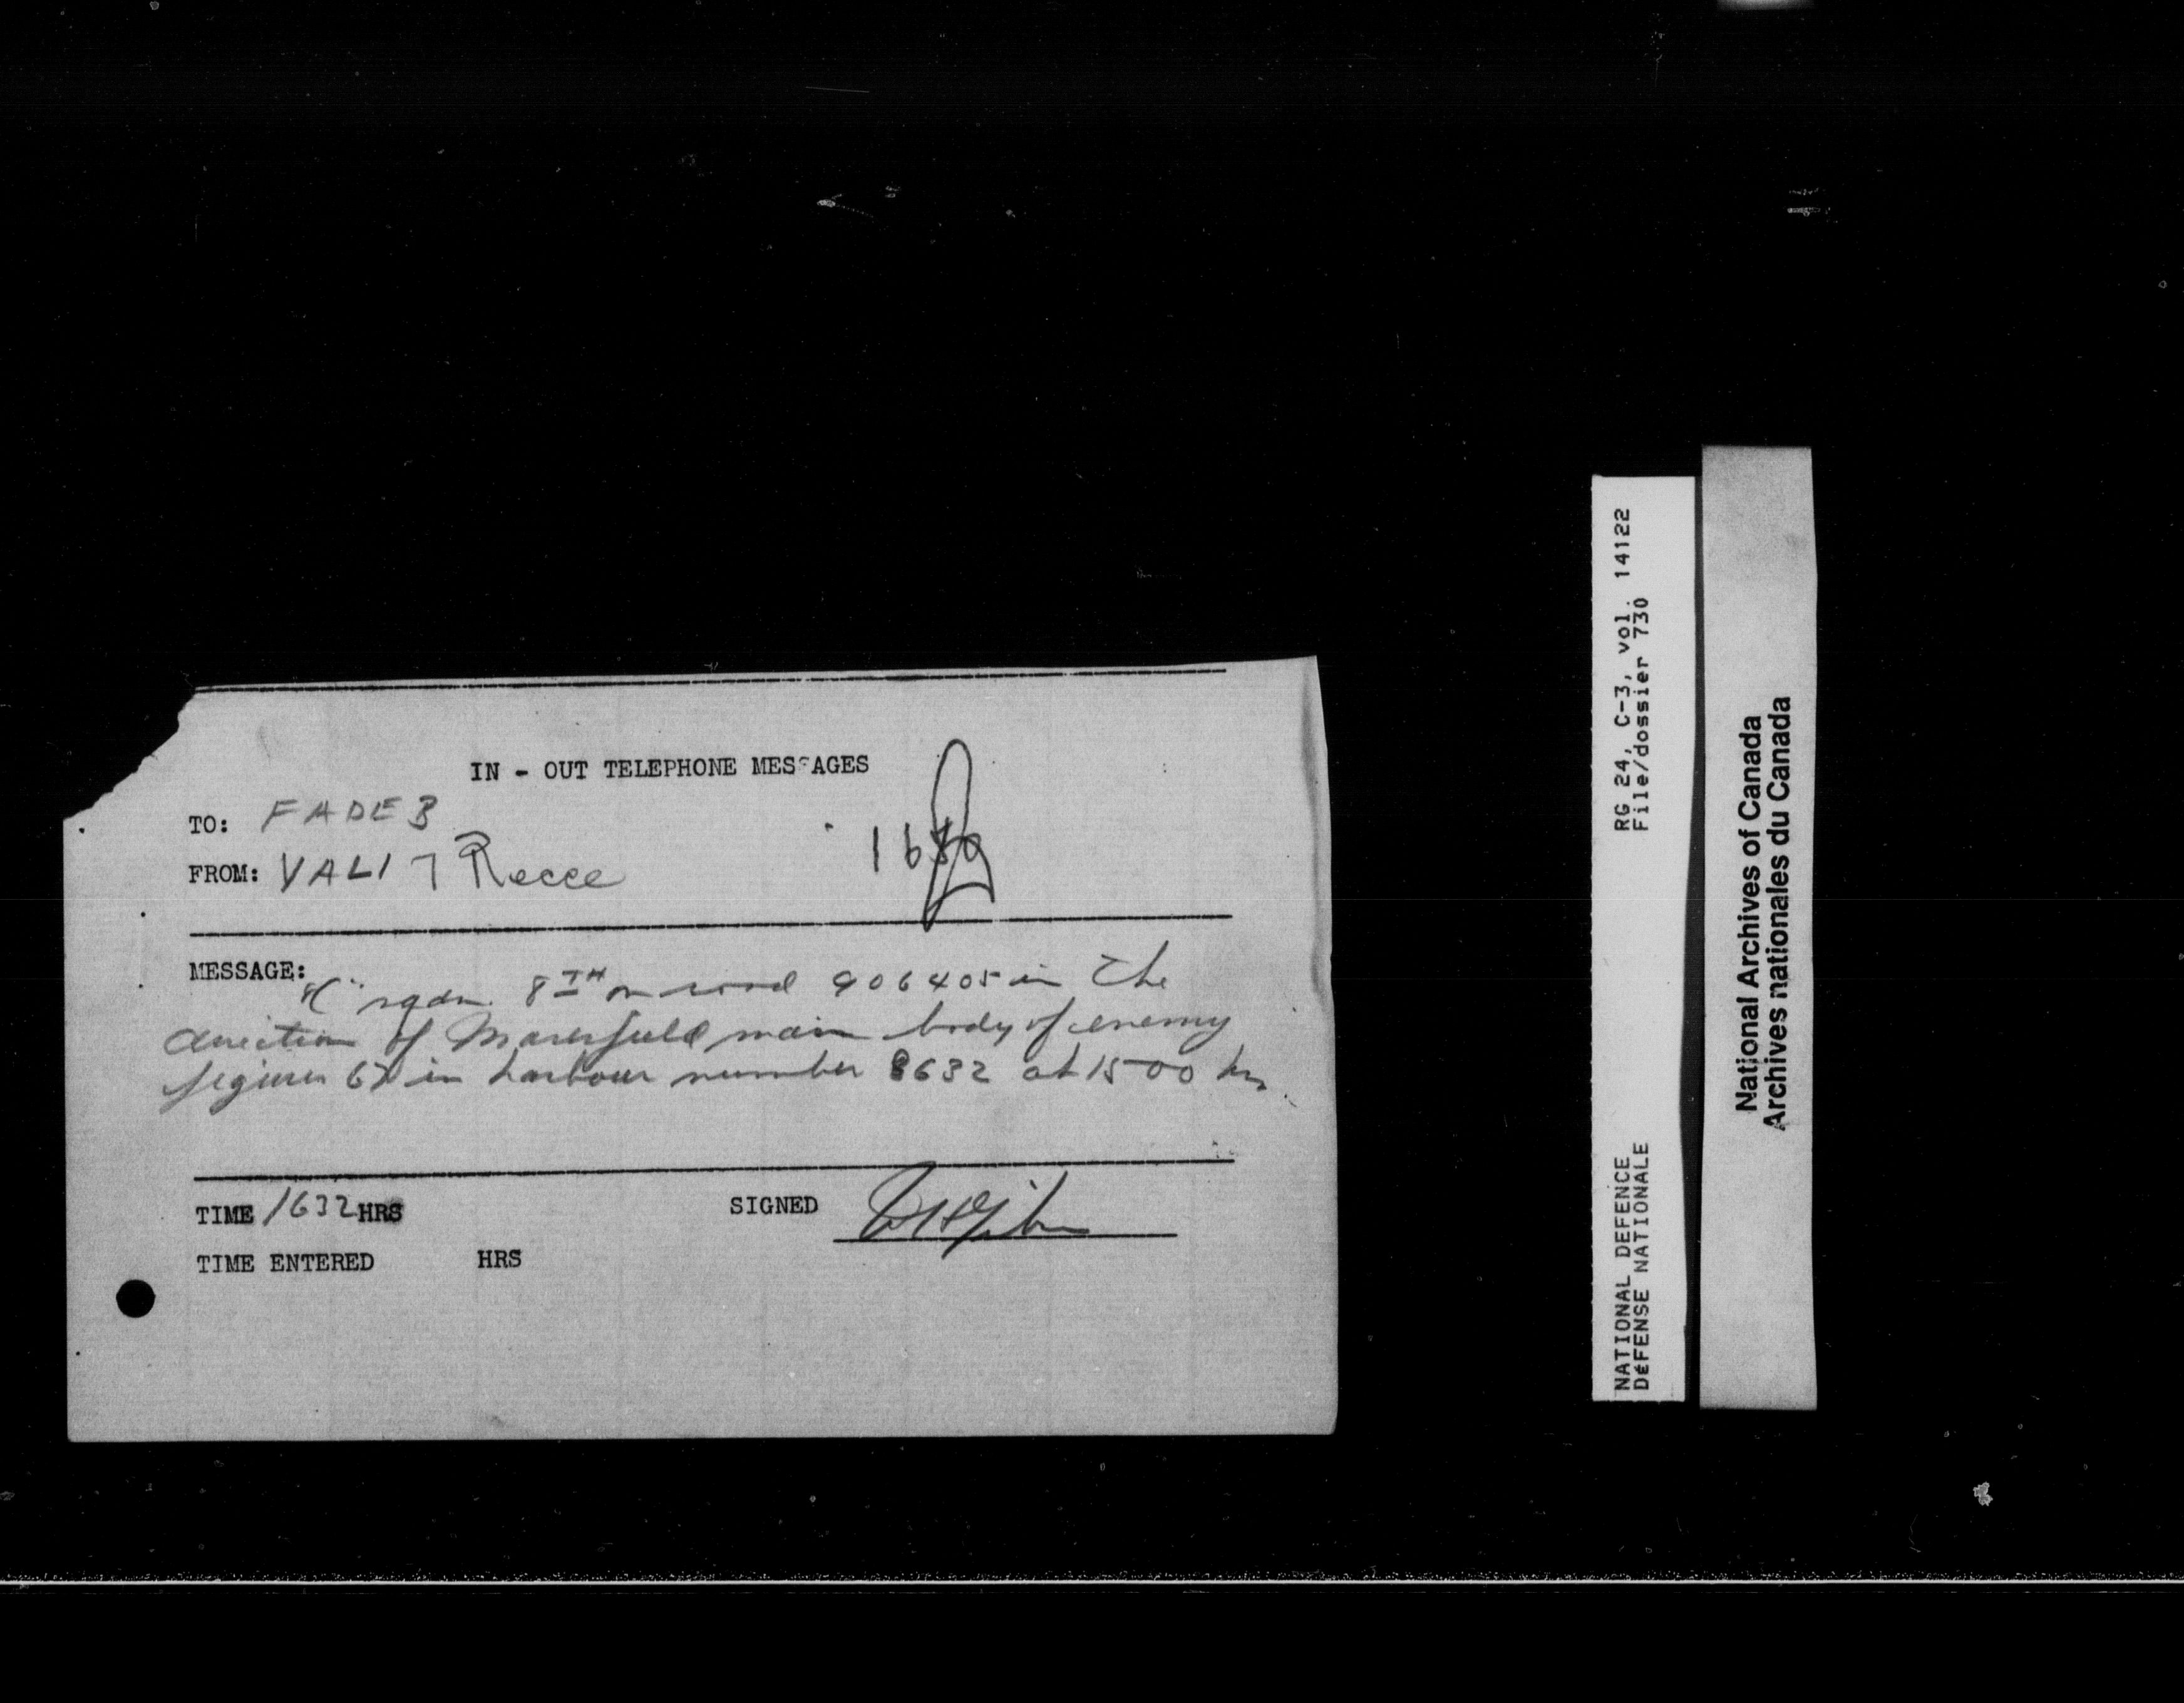 IN - OUT TELEPHONE MESSAGES
TO: FADE 3
FROM: VALI 7 Recce
MESSAGE:
"C" sqdn 8TH on road 906405 in the
direction of Maresfield main body of enemy
figures in harbour number 8632 at 1500 hrs.
TIME 1632 HRS
SIGNED
TIME ENTERED HRS
RG 24, C-3, vol. 14122
File/dossier 730
NATIONAL DEFENCE
DéFENSE NATIONALE
National Archives of Canada
Archives nationales du Canada